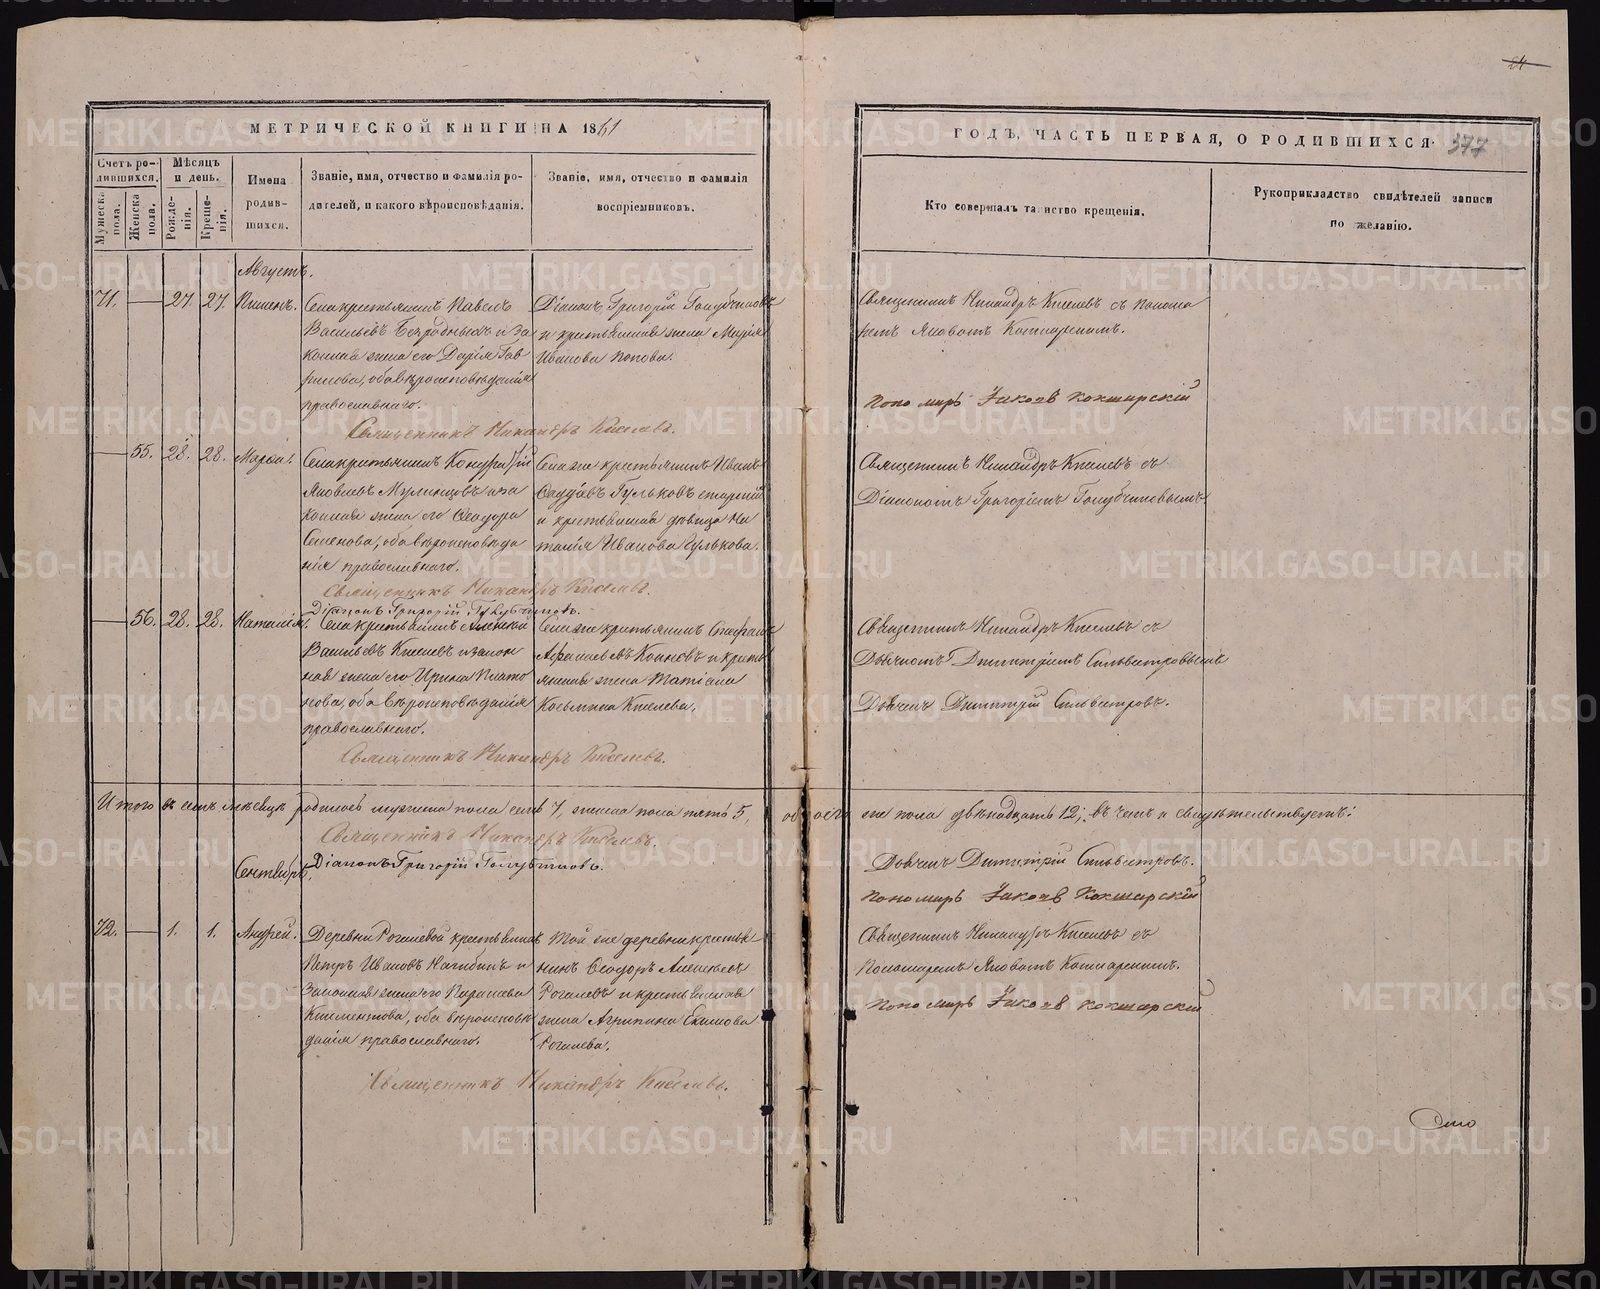 МЕТРИЧЕСКОЙ КНИГИ НА 1861
ГОДЪ, ЧАСТЬ ПЕРВАЯ, О РОДИВШИХСЯ.
377
Счетъ ро-
дившихся.
Мужеска пола.
Женска пола.
Мѣсяцъ
и день.
Рожде-
нія.
Креще-
нія.
Имена
родив-
шихся.
Званіе, имя, отчество и фамилія ро-
дителей, и какого вѣроисповѣданія.
Званіе, имя, отчество и фамилія
воспріемниковъ.
Кто совершалъ таинство крещенія.
Рукоприкладство свидѣтелей записи
по желанію.
Августъ.
71. 27. 27. Пименъ.
Села крестьянинъ Павелъ
Васильевъ и за
конная жена его Дарія Гав
рилова, оба вѣроисповѣданія
православнаго.
Діаконъ Григорій Голубчиковъ
и крестьянская жена Марія
Иванова Попова.
Священникъ Никандръ Киселевъ съ Понома
ремъ Яковомъ Кокшарскимъ.
Пономарь Іаковъ Кокшарскій
Священникъ Никандръ Киселевъ.
55. 28. 28. Марѳа.
Села крестьянинъ
Яковлевъ и за
конная жена его Ѳеодора
Семенова, оба вѣроисповѣда
нія православнаго.
Села же крестьянинъ Иванъ
Гульковъ старшій
и крестьянская дѣвица На
талія Иванова Гулькова.
Священникъ Никандръ Киселевъ съ
Діакономъ Григоріемъ Голубчиковымъ
Священникъ Никандръ Киселевъ.
Діаконъ Григорій Голубчиковъ.
56. 28. 28. Наталія.
Села крестьянинъ Алексій
Васильевъ Киселевъ и закон
ная жена его Ирина Плато
нова, оба вѣроисповѣданія
православнаго.
Села же крестьянинъ Стефанъ
Аѳанасьевъ и кресть
янская жена Татіана
Косьмина Киселева.
Священникъ Никандръ Киселевъ съ
Дьячкомъ Димитріемъ Сильвестровымъ
Дьячекъ Димитрій Сильвестровъ.
Священникъ Никандръ Киселевъ.
Итого въ семъ мѣсяцѣ родилось мужеска пола семь 7, женска пола пять 5, обоего же пола двѣнадцать 12; въ чемъ и свидѣтельствуемъ:
Священникъ Никандръ Киселевъ.
Діаконъ Григорій Голубчиковъ.
Дьячекъ Димитрій Сильвестровъ.
Пономарь Іаковъ Кокшарскій
Сентябрь.
72. 1. 1. Андрей.
Деревни Рогалевой крестьянинъ
Петръ Ивановъ Нагибинъ и
законная жена его Параскева
Климентова, оба вѣроисповѣ
данія православнаго.
Той же деревни крестья
нинъ Ѳеодоръ Алексѣевъ
Рогалевъ и крестьянская
жена Агрипина Екимова
Рогалева.
Священникъ Никандръ Киселевъ съ
Пономаремъ Яковомъ Кокшарскимъ.
Пономарь Іаковъ Кокшарскій
Священникъ Никандръ Киселевъ.
METRIKI.GASO-URAL.RU